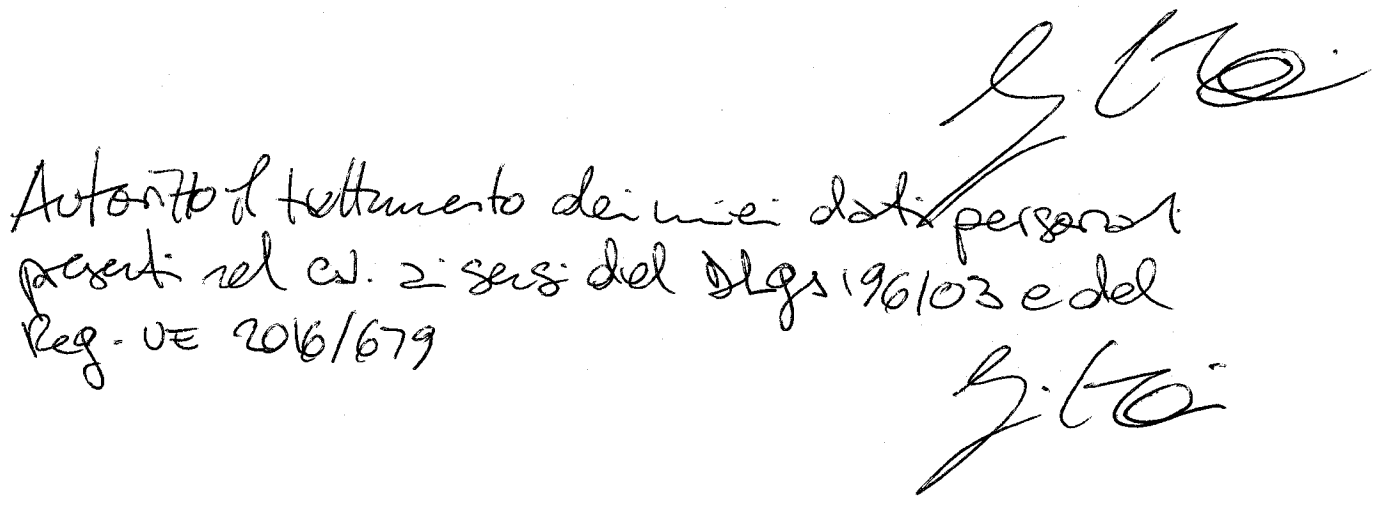 Autorizzo il trattamento dei miei dati personali
presenti nel cv. ai sensi del DLgs 196/03 e del
Reg. UE 2016/679